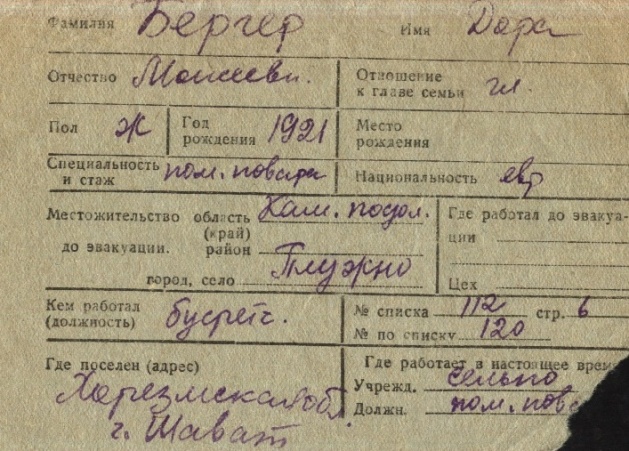 Фамилия Бергер Имя Дора
Отчество Моисеевн. Отношение к главе семьи гл.
Пол Ж Год рождения 1921 Место рождения
Специальность и стаж пом. повара Национальность евр
Местожительство область (край) Кам. подол. Где работал до эвакуа-
до эвакуации. район ции
город, село Плужно Цех
Кем работал (должность) буфетч. № списка 112 стр. 6
№ по списку 120
Где поселен (адрес) Где работает в настоящее врем
Харезмская обл. Учрежд. сельпо
г. Шават Должн. пом. пова